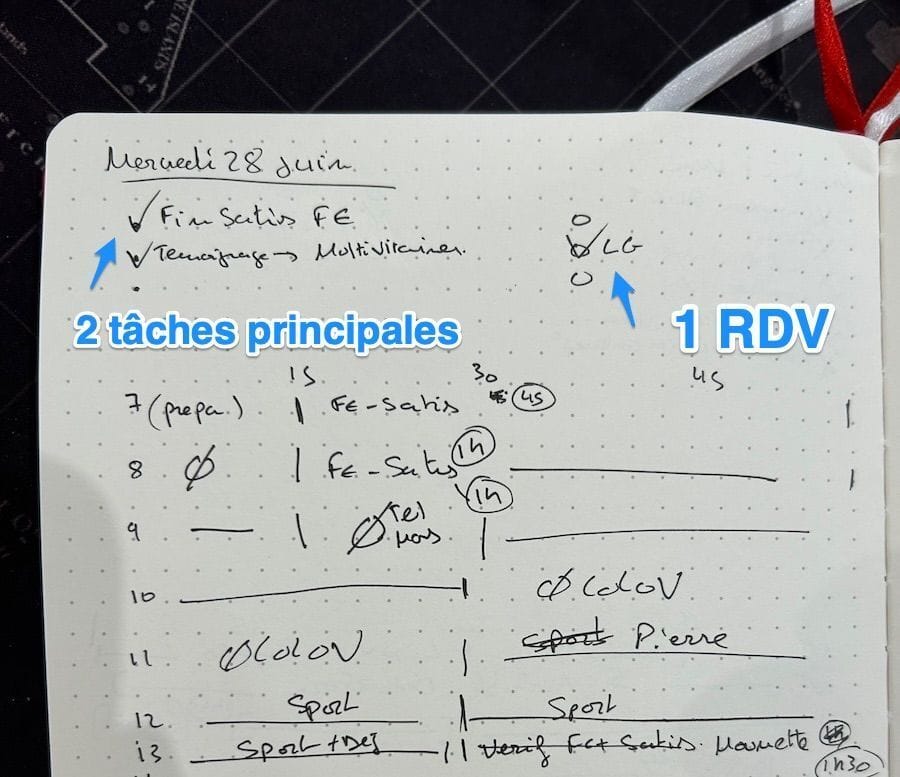 Mercredi 28 Juin
Fin Satis FE
Témoignage → Multivitamines.
LG
2 tâches principales
1 RDV
15 30 45
7 (prepa.) FE-Satis 45
8 Ø FE-Satis 1h
9 Ø Tel 1h
10 Ø COLOV
11 ØCOLOV Sport Pierre
12 Sport Sport
13 Sport + Dej Verif FE+ Satis. 1h30